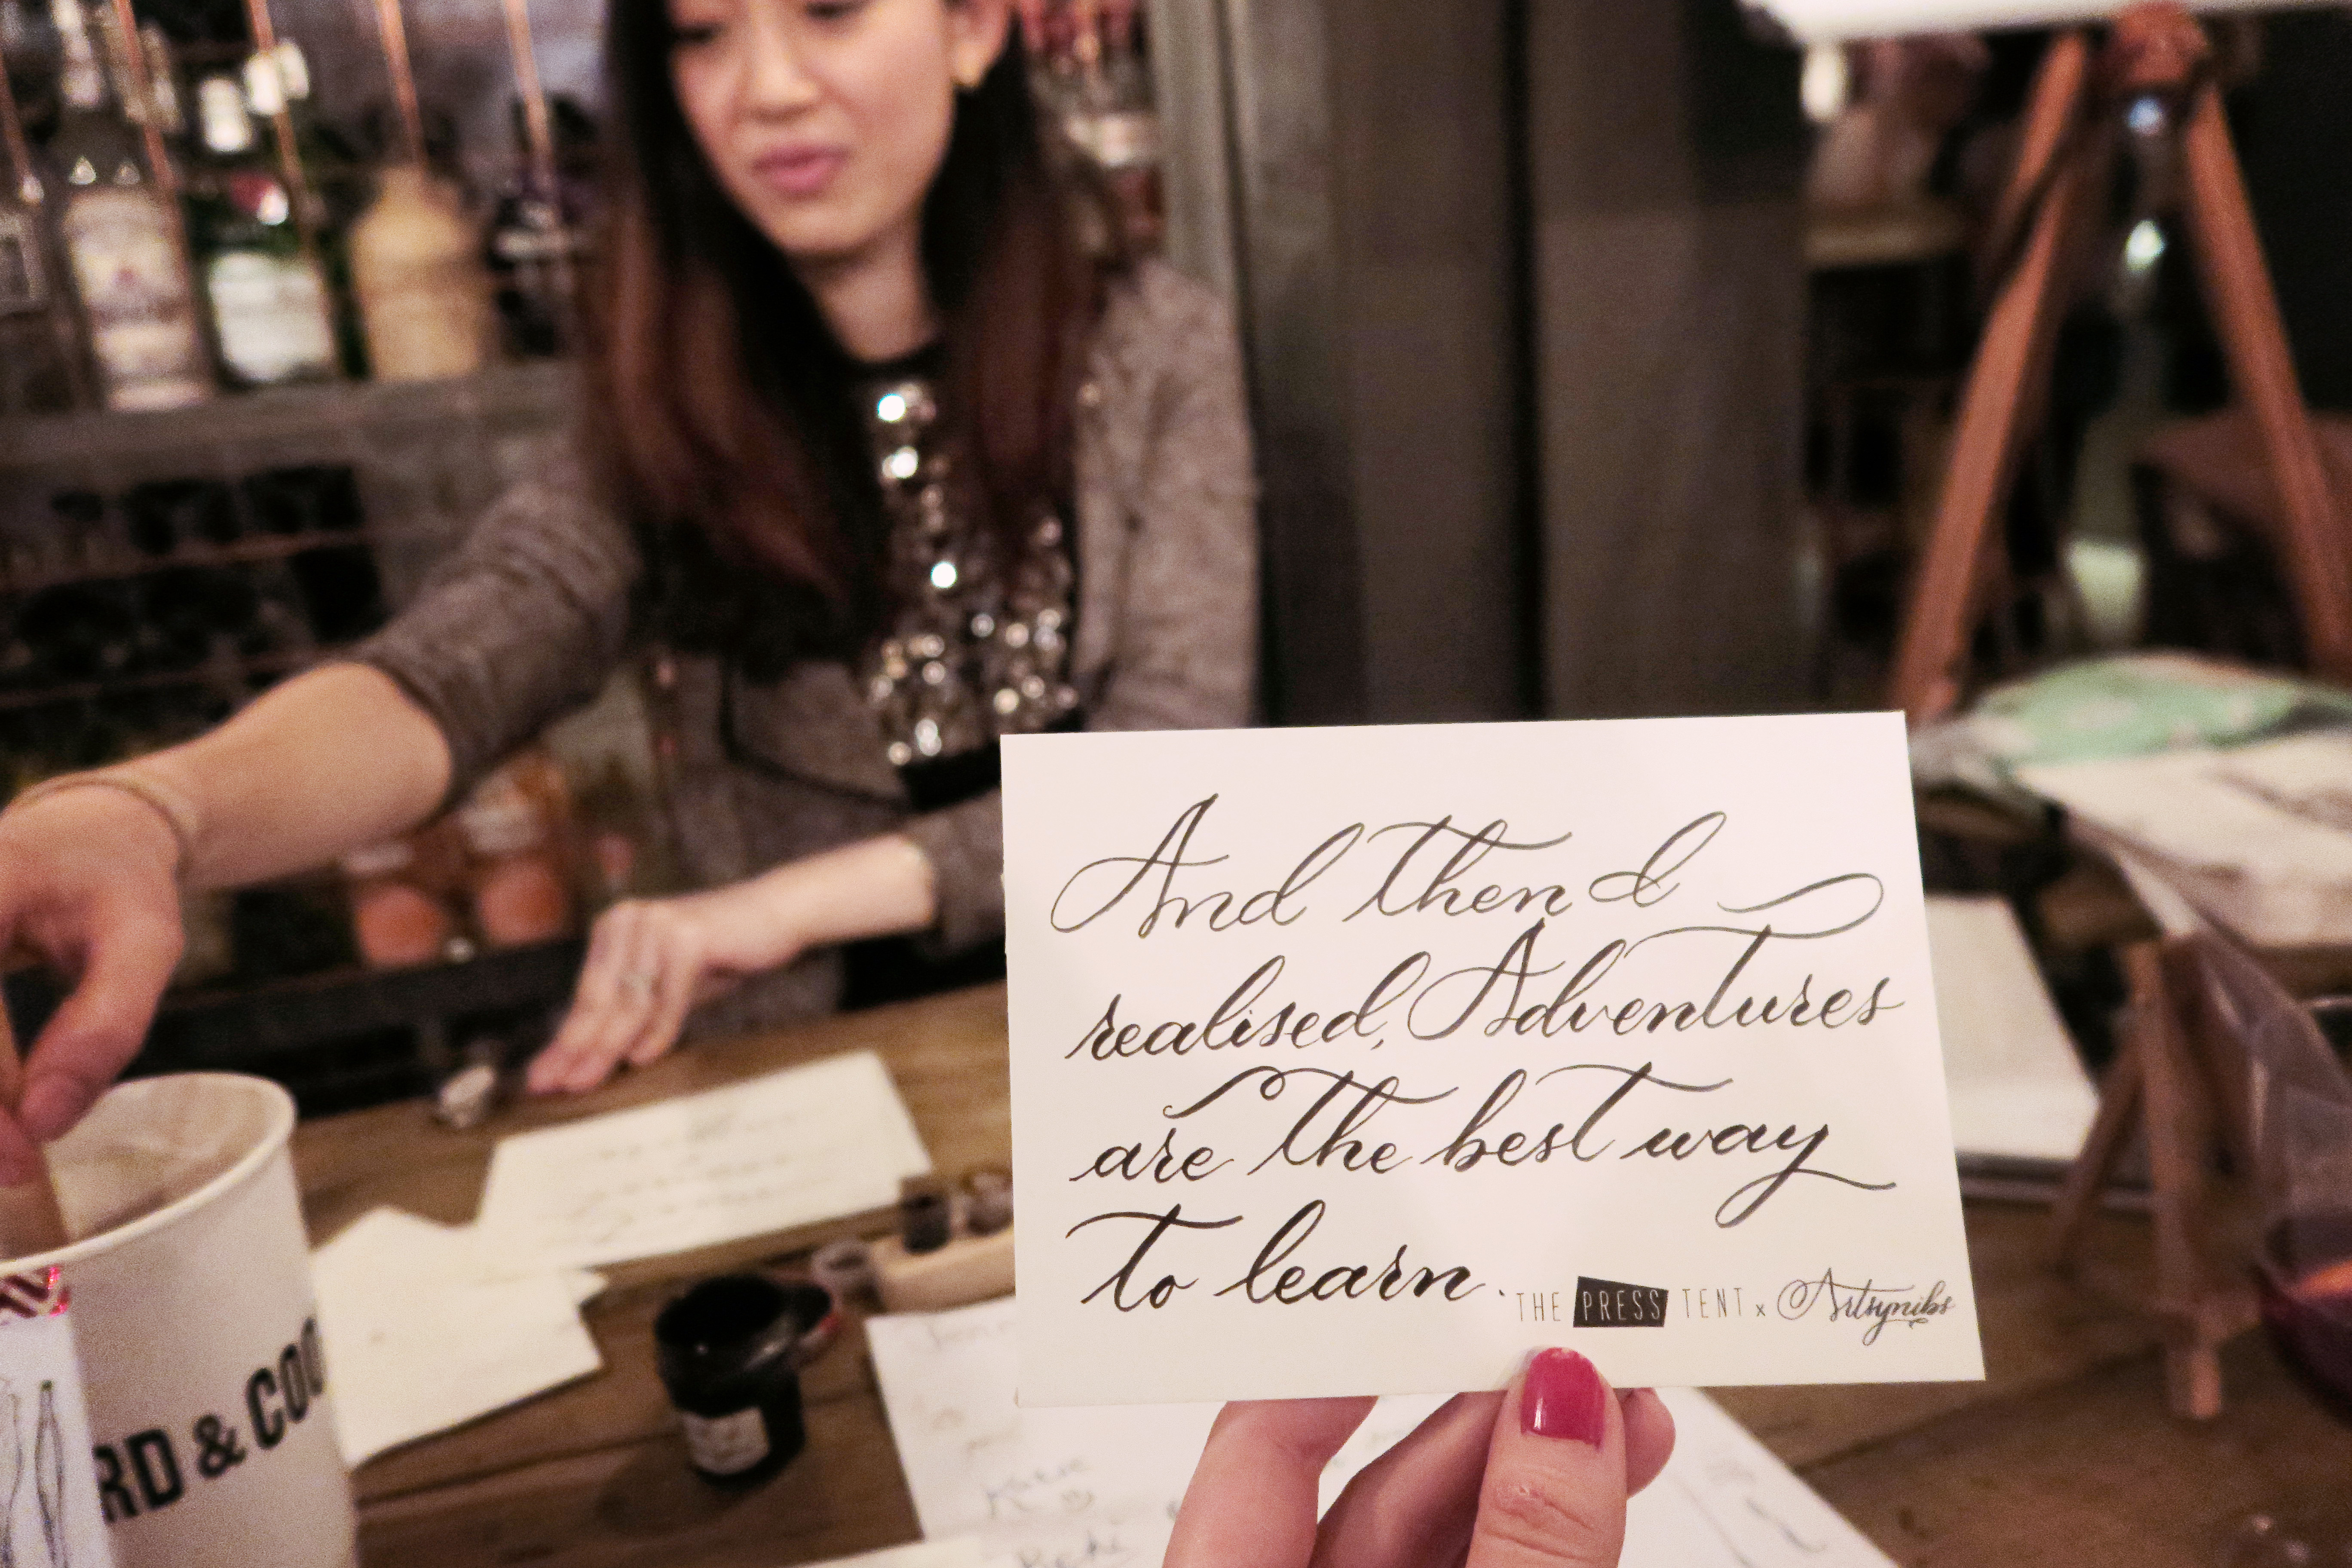 And then I
realised, Adventures
are the best way
to learn.
THE PRESS TENT x Artsynibs
RD & COO